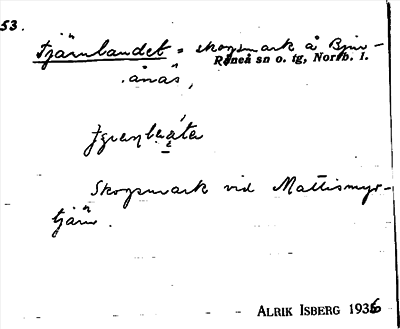 53.
Tjärnlandet = skogsmark å Bjur-
Råneå sn o. tg, Norrb. l.
ånäs,
Skogsmark vid Mattismyr-
tjärn.
ALRIK ISBERG 1936